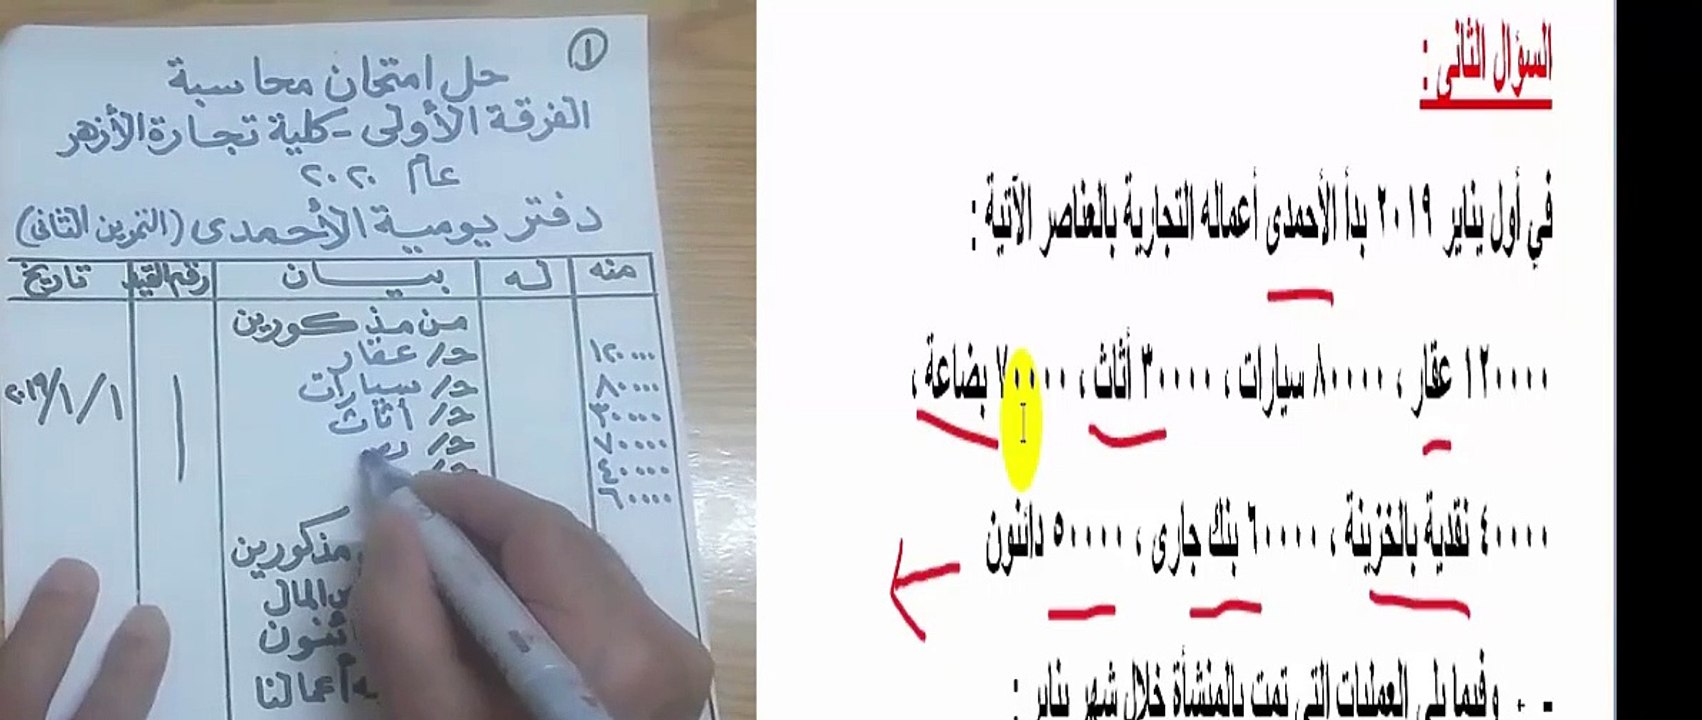 ١
حل امتحان محاسبة
الفرقة الأولى - كلية تجارة الأزهر
عام ٢٠٢٠
دفتر يومية الأحمدى (التمرين الثانى)
منه له بيــان رقم القيد تاريخ
من مذكورين
١٢٠٠٠٠ ح/ عقار
٨٠٠٠٠ ح/ سيارات ١ ٢٠١٩/١/١
٣٠٠٠٠ ح/ أثاث
٧٠٠٠٠ ح/
٤٠٠٠٠ ح/
٦٠٠٠٠
مذكورين
المال
أعمالنا
السؤال الثانى :
في أول يناير ٢٠١٩ بدأ الأحمدى أعماله التجارية بالعناصر الآتية :
١٢٠٠٠٠ عقار ، ٨٠٠٠٠ سيارات ، ٣٠٠٠٠ أثاث ، ٧٠٠٠٠ بضاعة ،
٤٠٠٠٠ نقدية بالخزينة ، ٦٠٠٠٠ بنك جارى ، ٥٠٠٠٠ دائنون
- وفيما يلى العمليات التى تمت بالمنشأة خلال شهر يناير :